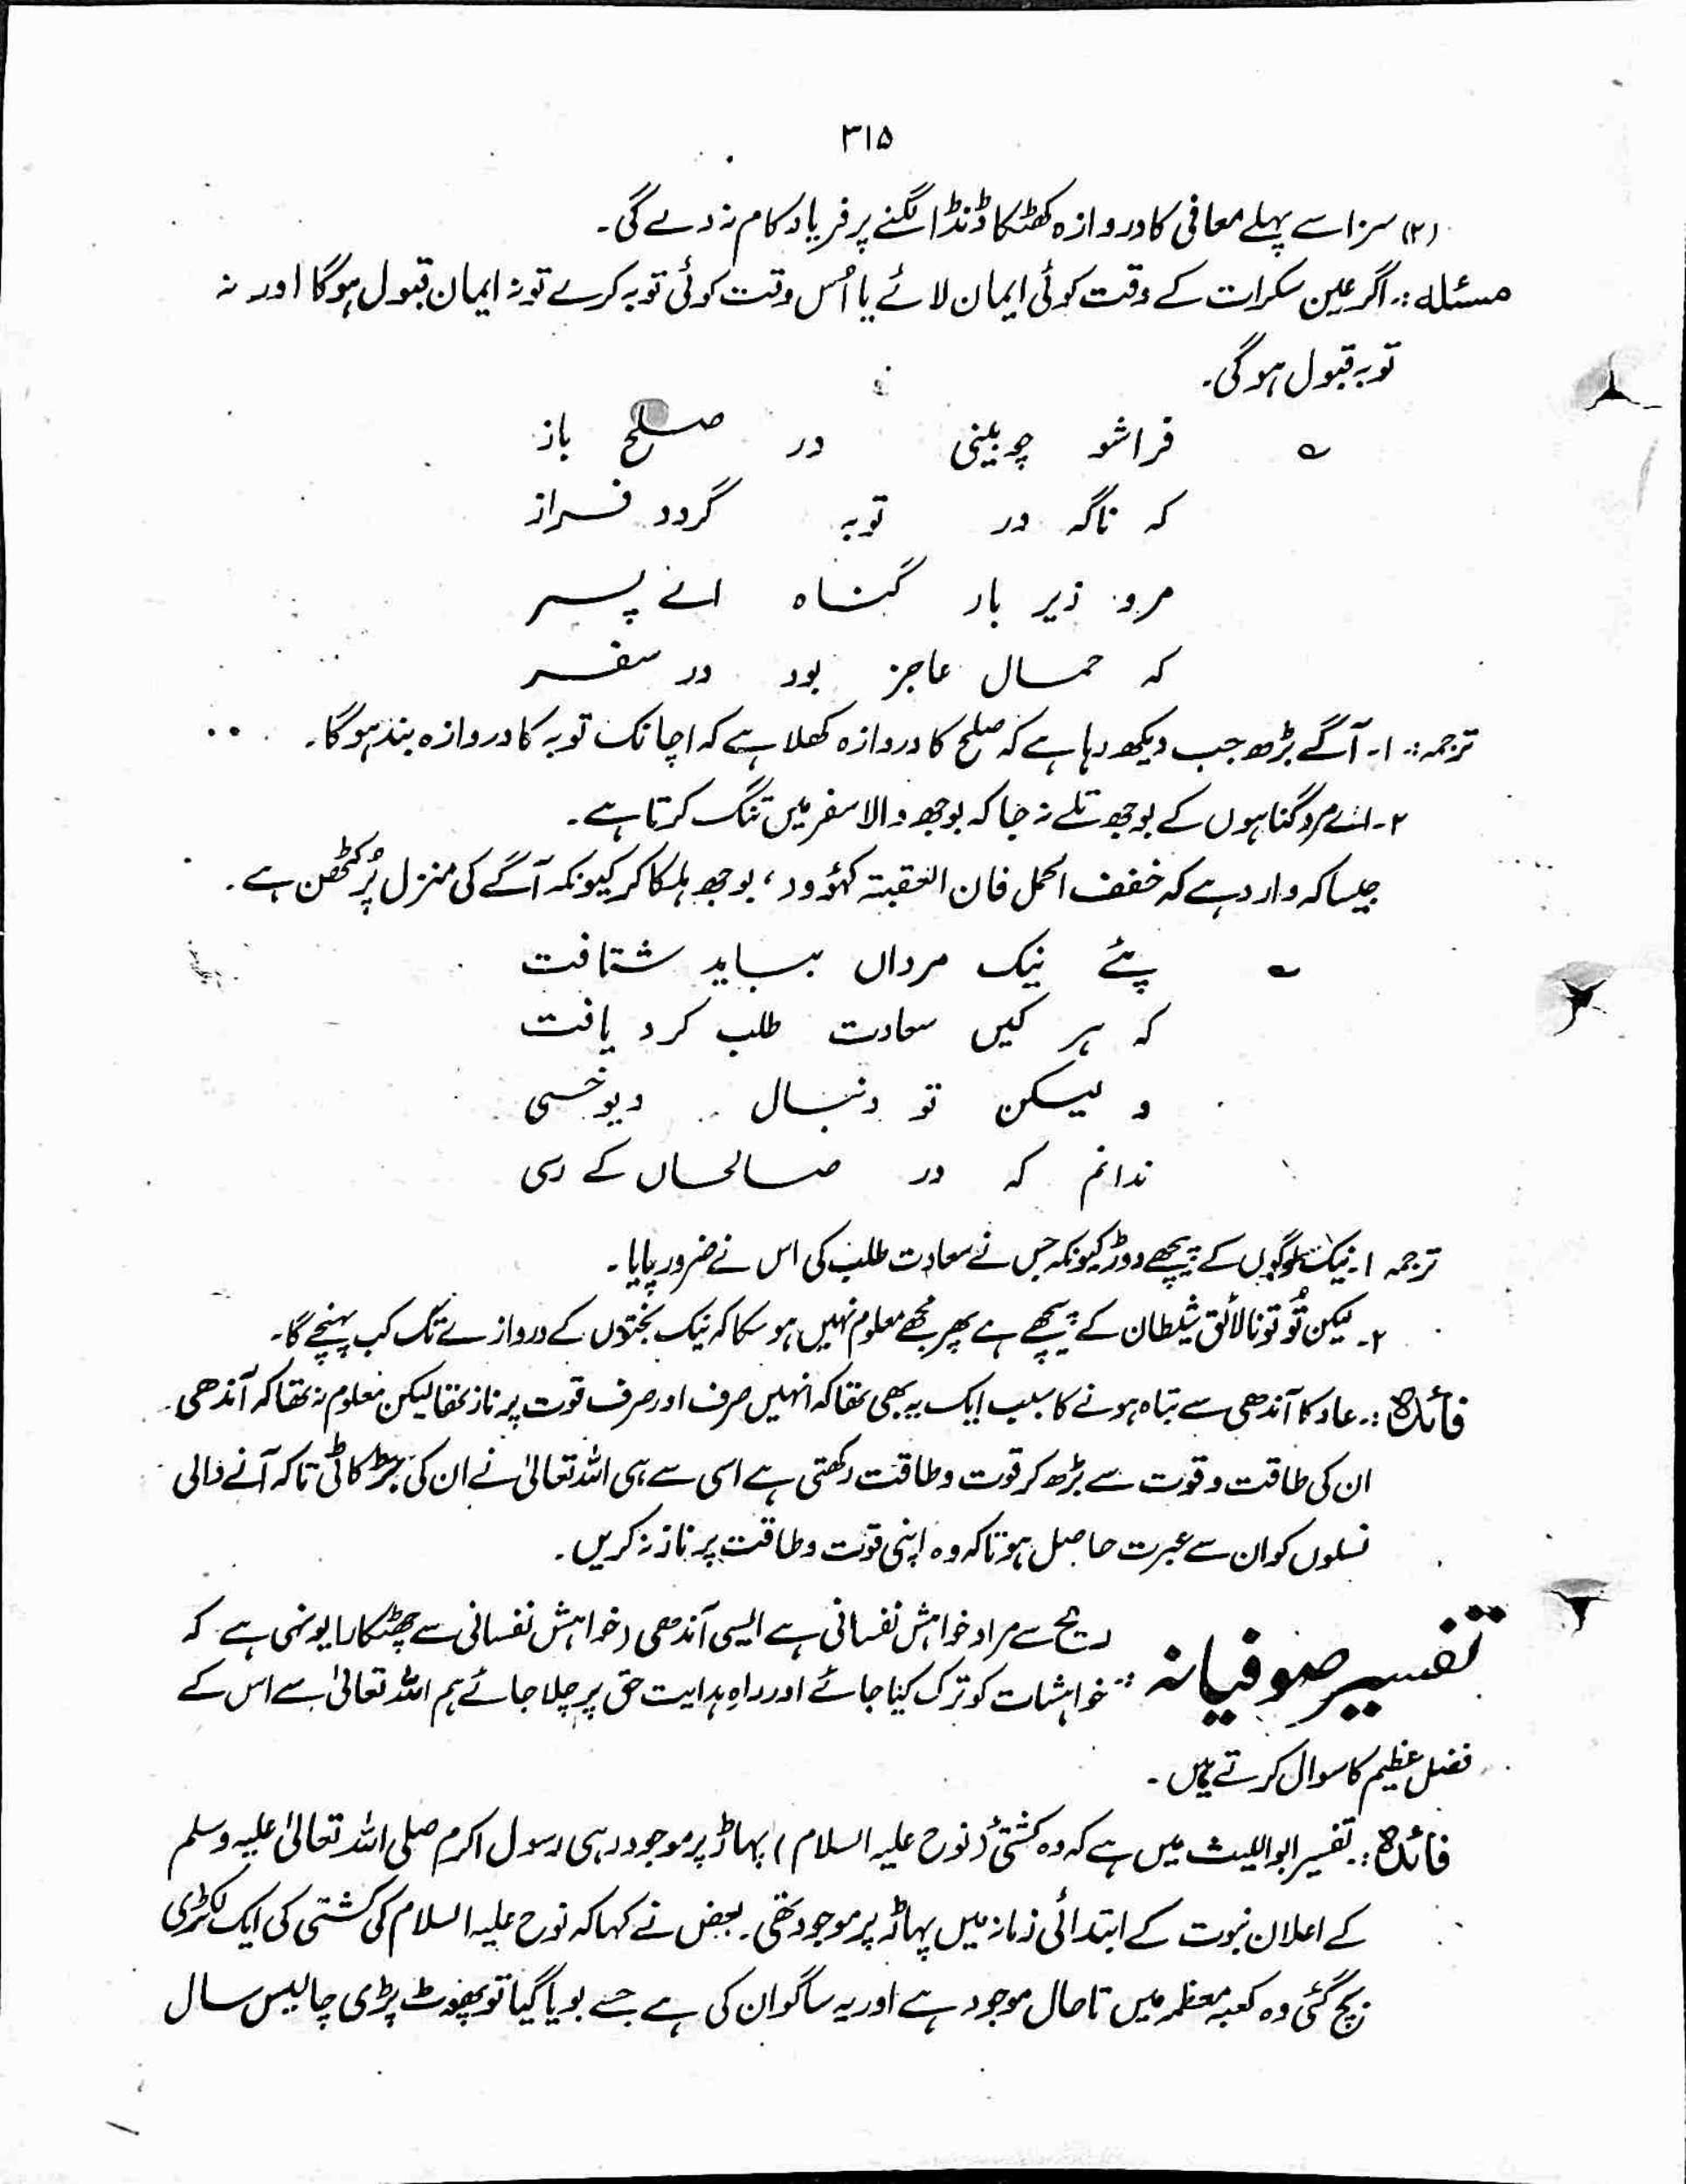 ۳۱۵
(۲) سزا سے پہلے معافی کا دروازہ کھٹکا ڈنڈا لگنے پر فریاد کام نہ دے گی۔
مسئلہ :۔ اگر عین سکرات کے وقت کوئی ایمان لائے یا اُس وقت کوئی توبہ کرے تو نہ ایمان قبول ہوگا اور نہ
توبہ قبول ہوگی۔
؎ فراشو چو بینی در صلح باز
کہ ناگہ در توبہ گردد فراز
مرو زیر بار گناہ اے پسر
کہ حمال عاجز بود در سفر
ترجمہ :۔ ۱۔ آگے بڑھ جب دیکھ رہا ہے کہ صلح کا دروازہ کھلا ہے کہ اچانک توبہ کا دروازہ بند ہوگا۔
۲۔ اے مرد گناہوں کے بوجھ تلے نہ جا کہ بوجھ والا سفر میں تنگ کرتا ہے۔
جیسا کہ وارد ہے کہ خفف الحمل فان العقبتہ کہؤود ، بوجھ ہلکا کر کیونکہ آگے کی منزل پُر کٹھن ہے۔
؎ پئے نیک مرداں بباید شتافت
کہ ہر کیں سعادت طلب کرد یافت
و لیکن تو دنبال دیو خسی
ندانم کہ در صالحاں کے رسی
ترجمہ ۱۔ نیک لوگوں کے پیچھے دوڑ کیونکہ جس نے سعادت طلب کی اس نے ضرور پایا۔
۲۔ لیکن تُو تو نالائق شیطان کے پیچھے ہے پھر مجھے معلوم نہیں ہو سکا کہ نیک بختوں کے دروازے تک کب پہنچے گا۔
فائدہ :۔ عاد کا آندھی سے تباہ ہونے کا سبب ایک یہ بھی تھا کہ انہیں صرف اور صرف قوت پر ناز تھا لیکن معلوم نہ تھا کہ آندھی
ان کی طاقت و قوت سے بڑھ کر قوت و طاقت رکھتی ہے اسی سے ہی اللہ تعالیٰ نے ان کی جڑ کاٹی تاکہ آنے والی
نسلوں کو ان سے عبرت حاصل ہو تاکہ وہ اپنی قوت و طاقت پر ناز نہ کریں۔
تفسیر صوفیانہ :۔ ریح سے مراد خواہش نفسانی ہے ایسی آندھی (خواہش نفسانی سے چھٹکارا یونہی ہے کہ
خواہشات کو ترک کیا جائے اور راہِ ہدایت حق پر چلا جائے ہم اللہ تعالیٰ سے اس کے
فضل عظیم کا سوال کرتے ہیں۔
فائدہ :۔ تفسیر ابو اللیث میں ہے کہ وہ کشتی (نوح علیہ السلام) پہاڑ پر موجود رہی رسول اکرم صلی اللہ تعالیٰ علیہ وسلم
کے اعلان نبوت کے ابتدائی زمانہ میں پہاڑ پر موجود تھی۔ بعض نے کہا کہ نوح علیہ السلام کی کشتی کی ایک لکڑی
بچ گئی وہ کعبہ معظمہ میں تاحال موجود ہے اور یہ ساگوان کی ہے جسے بویا گیا تو پھوٹ پڑی چالیس سال